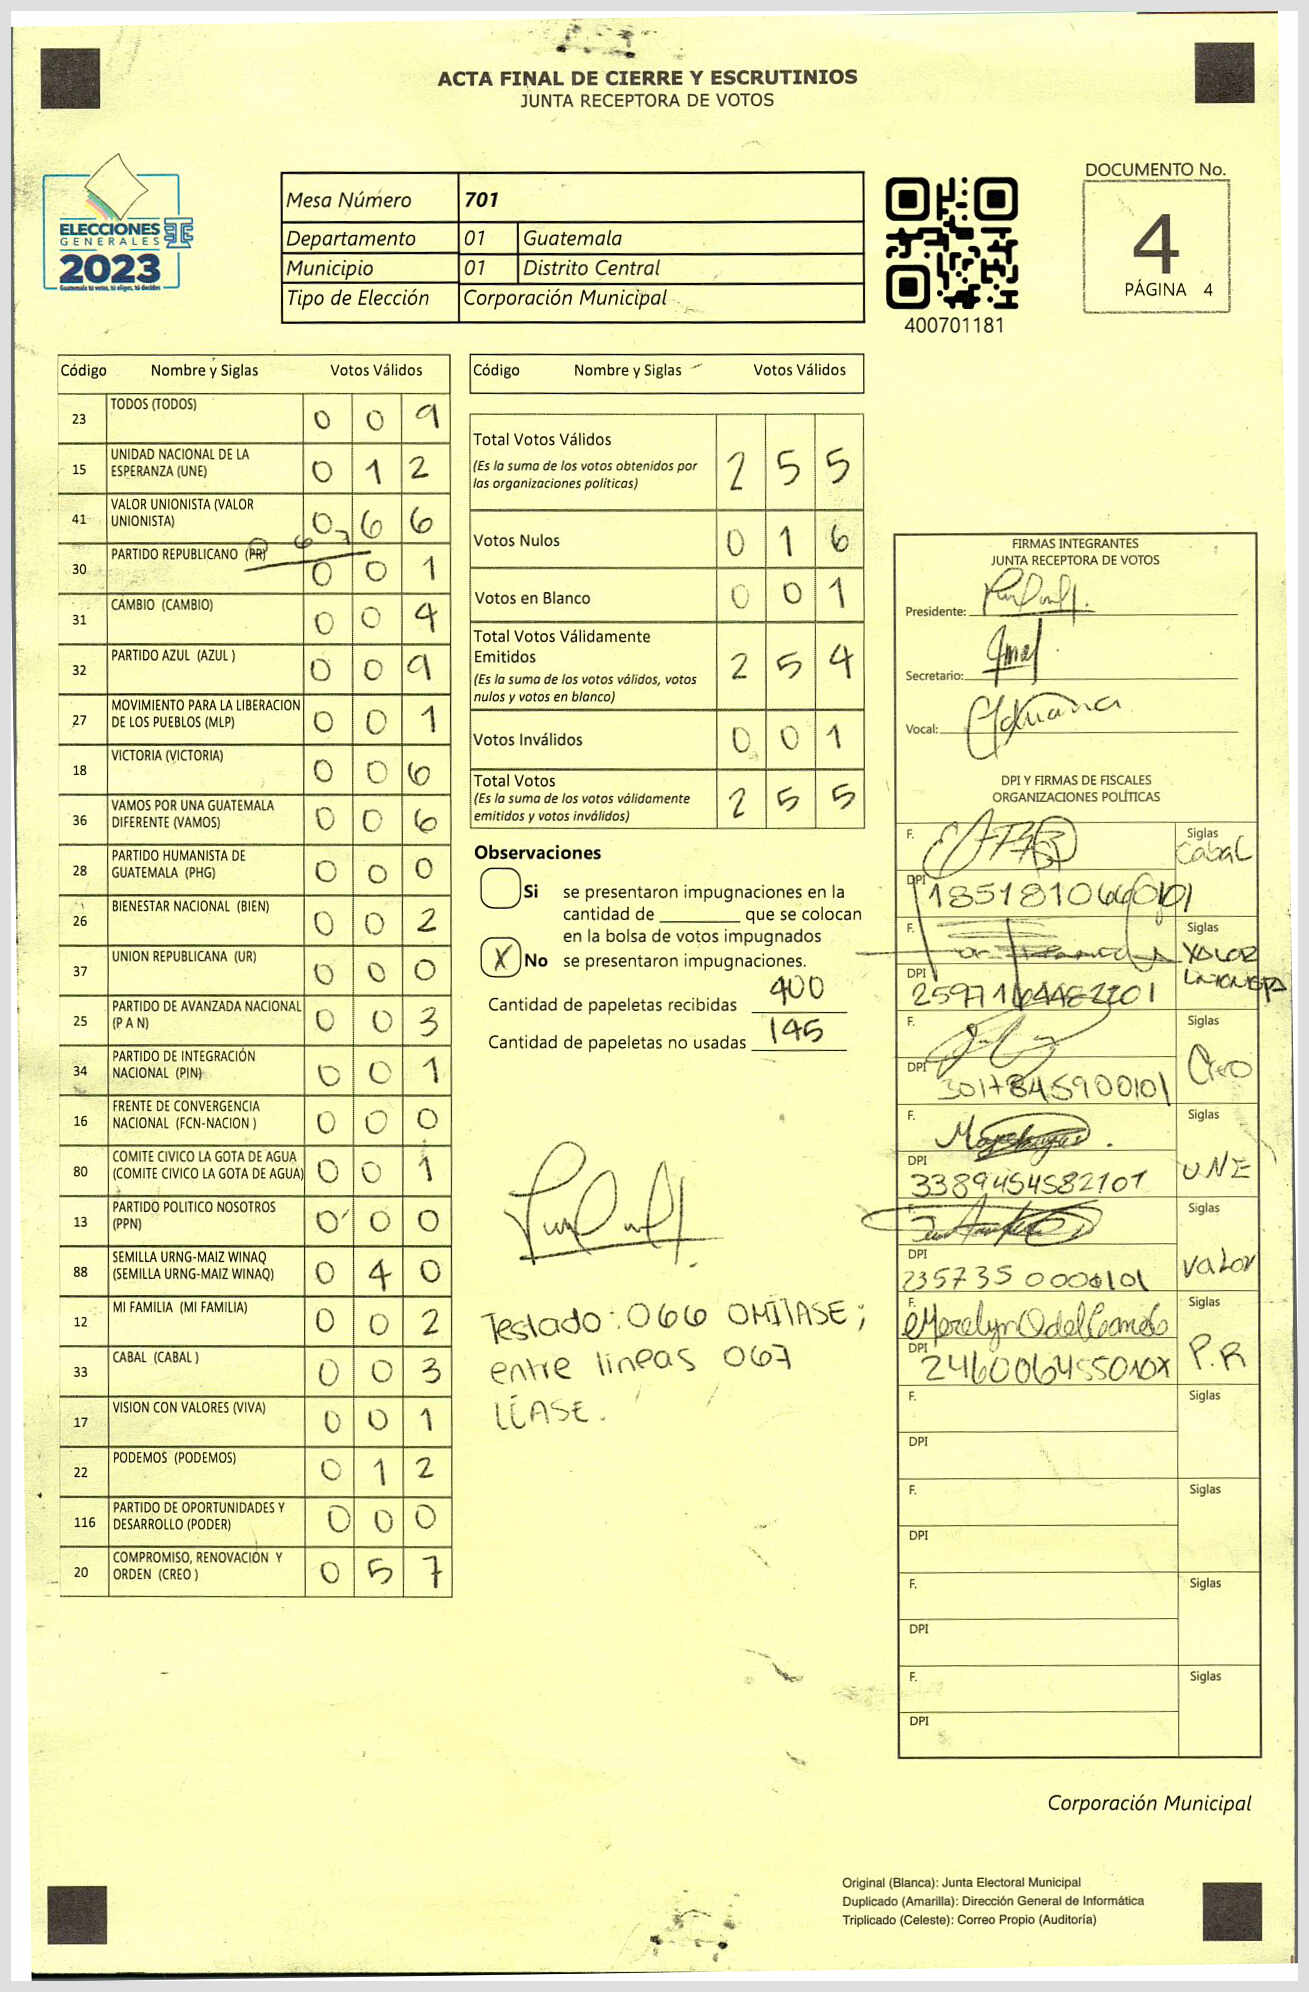 ACTA FINAL DE CIERRE Y ESCRUTINIOS
JUNTA RECEPTORA DE VOTOS
ELECCIONES
GENERALES
2023
Guatemala tú votas, tú eliges, tú decides
Mesa Número 701
Departamento 01 Guatemala
Municipio 01 Distrito Central
Tipo de Elección Corporación Municipal
400701181
DOCUMENTO No.
4
PÁGINA 4
Código Nombre y Siglas Votos Válidos
23 TODOS (TODOS) 0 0 9
15 UNIDAD NACIONAL DE LA ESPERANZA (UNE) 0 1 2
41 VALOR UNIONISTA (VALOR UNIONISTA) 0 6 6
0 6 7
30 PARTIDO REPUBLICANO (PR) 0 0 1
31 CAMBIO (CAMBIO) 0 0 4
32 PARTIDO AZUL (AZUL ) 0 0 9
27 MOVIMIENTO PARA LA LIBERACION DE LOS PUEBLOS (MLP) 0 0 1
18 VICTORIA (VICTORIA) 0 0 6
36 VAMOS POR UNA GUATEMALA DIFERENTE (VAMOS) 0 0 6
28 PARTIDO HUMANISTA DE GUATEMALA (PHG) 0 0 0
26 BIENESTAR NACIONAL (BIEN) 0 0 2
37 UNION REPUBLICANA (UR) 0 0 0
25 PARTIDO DE AVANZADA NACIONAL (P A N) 0 0 3
34 PARTIDO DE INTEGRACIÓN NACIONAL (PIN) 0 0 1
16 FRENTE DE CONVERGENCIA NACIONAL (FCN-NACION ) 0 0 0
80 COMITE CIVICO LA GOTA DE AGUA (COMITE CIVICO LA GOTA DE AGUA) 0 0 1
13 PARTIDO POLITICO NOSOTROS (PPN) 0 0 0
88 SEMILLA URNG-MAIZ WINAQ (SEMILLA URNG-MAIZ WINAQ) 0 4 0
12 MI FAMILIA (MI FAMILIA) 0 0 2
33 CABAL (CABAL ) 0 0 3
17 VISION CON VALORES (VIVA) 0 0 1
22 PODEMOS (PODEMOS) 0 1 2
116 PARTIDO DE OPORTUNIDADES Y DESARROLLO (PODER) 0 0 0
20 COMPROMISO, RENOVACIÓN Y ORDEN (CREO ) 0 5 7
Código Nombre y Siglas Votos Válidos
Total Votos Válidos 2 5 5
(Es la suma de los votos obtenidos por
las organizaciones políticas)
Votos Nulos 0 1 6
Votos en Blanco 0 0 1
Total Votos Válidamente
Emitidos 2 5 4
(Es la suma de los votos válidos, votos
nulos y votos en blanco)
Votos Inválidos 0 0 1
Total Votos 2 5 5
(Es la suma de los votos válidamente
emitidos y votos inválidos)
Observaciones
Si se presentaron impugnaciones en la
cantidad de ________ que se colocan
en la bolsa de votos impugnados
X No se presentaron impugnaciones.
Cantidad de papeletas recibidas 400
Cantidad de papeletas no usadas 145
Testado: 066 OMITASE;
entre lineas 067
LÉASE.
FIRMAS INTEGRANTES
JUNTA RECEPTORA DE VOTOS
Presidente:
Secretario:
Vocal:
DPI Y FIRMAS DE FISCALES
ORGANIZACIONES POLÍTICAS
F. Siglas Cabal
DPI
F. Siglas VALOR UNIONISTA
DPI
F. Siglas Creo
DPI 3017845900101
F. Siglas UNE
DPI 3389454582101
F. Siglas Valor
DPI 235735 0000101
F. Siglas P.R
DPI
F. Siglas
DPI
F. Siglas
DPI
F. Siglas
DPI
F. Siglas
DPI
Corporación Municipal
Original (Blanca): Junta Electoral Municipal
Duplicado (Amarilla): Dirección General de Informática
Triplicado (Celeste): Correo Propio (Auditoría)